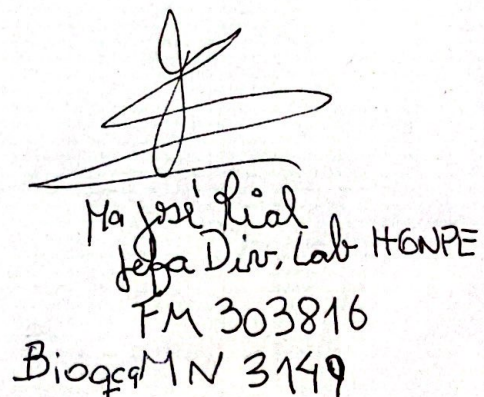 Ma José Rial
Jefa Div. Lab HGNPE
FM 303816
Bioqca MN 3149